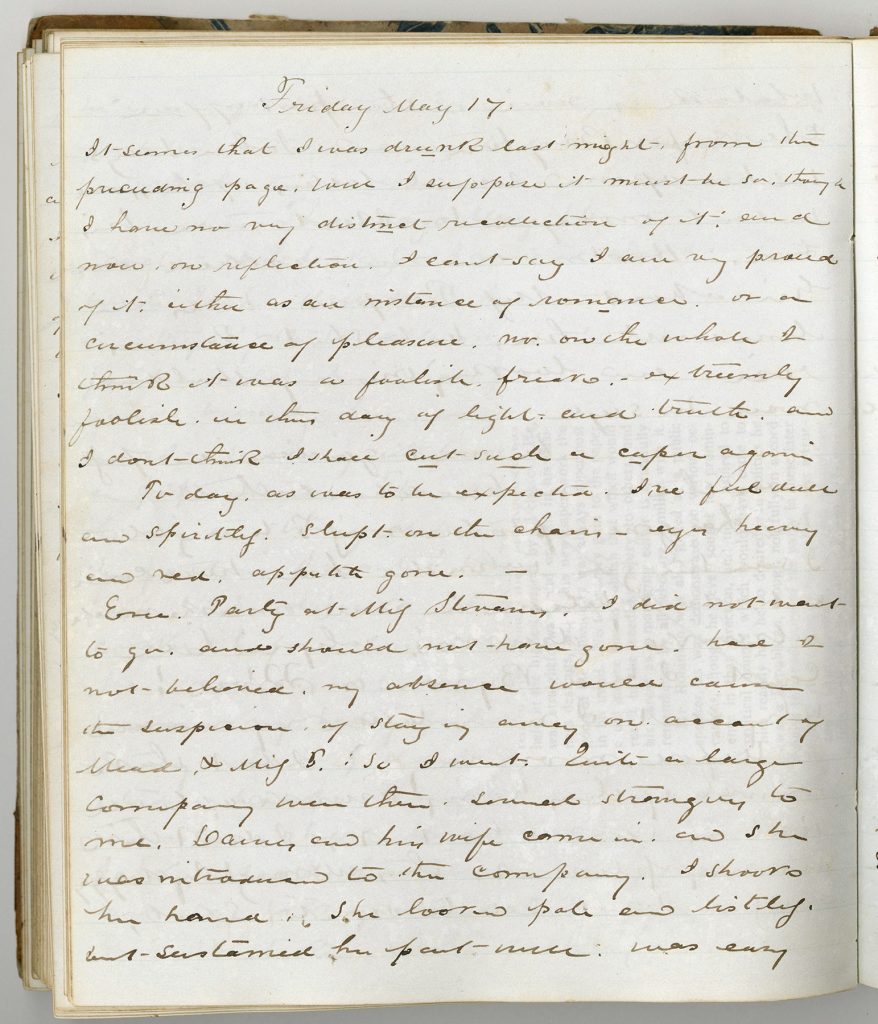 Friday May 17.
It seems that I was drunk last night, from the
preceeding page. well I suppose it must be so, though
I have no very distinct recollection of it; and
now, on reflection, I cant say I am very proud
of it, either as an instance of romance, or a
circumstance of pleasure, no, on the whole I
think it was a foolish freak, - extreemly
foolish, in this day of light and truth, and
I dont think I shall cut such a caper again
To day, as was to be expected, I've feel dull
and spiritless. Slept on the chairs - eyes heavy
and red, appetite gone. -
Eve. Party at Miss Stevens. I did not want
to go, and should not have gone, had I
not believed, my absence would cause
the suspicion of staying away on account of
Mead, & Miss B. : So I went. Quite a large
company were there. several strangers to
me. and his wife came in, and she
was introduced to the company. I shook
her hand; She looked pale and listless,
but sustained her part well. was easy